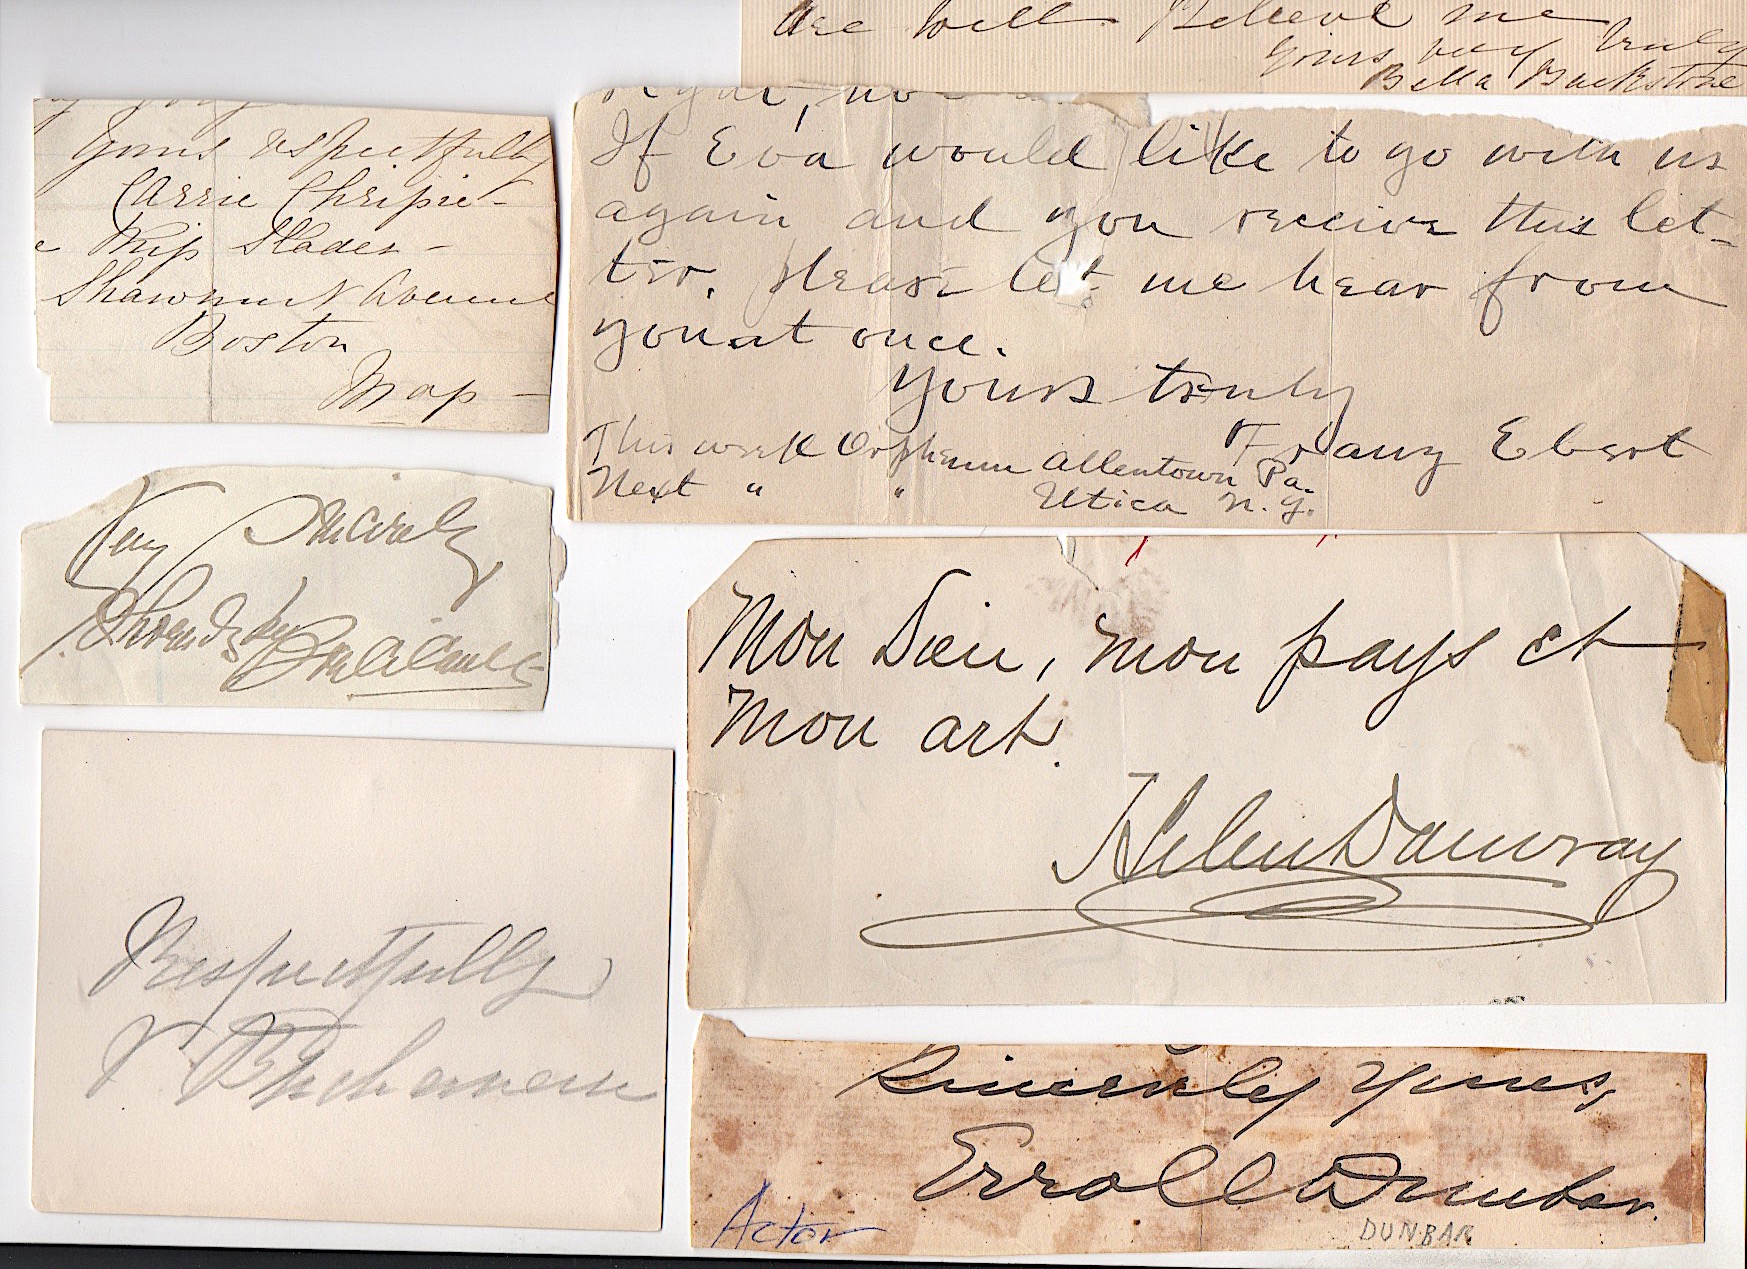 are well. Believe me
yours very truly
Bella Buckstone
Yours respectfully
Carrie
Shawmut Avenue
Boston
Mass -
If Eva would like to go with us
again and you receive this let-
ter, please let me hear from
you at once.
Yours truly
Franz Ebert
This week Orpheum Allentown Pa.
Next " " Utica N.Y.
Very Sincerely
Mon Dieu, mon pays et
Mon art.
Helen Dauvray
Respectfully
V. Buchanan
Sincerely Yours,
Erroll Dunbar.
Actor
DUNBAR